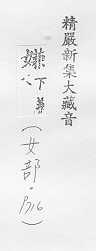 精嚴新集大藏音
嫌下兼
(女部.P.16)